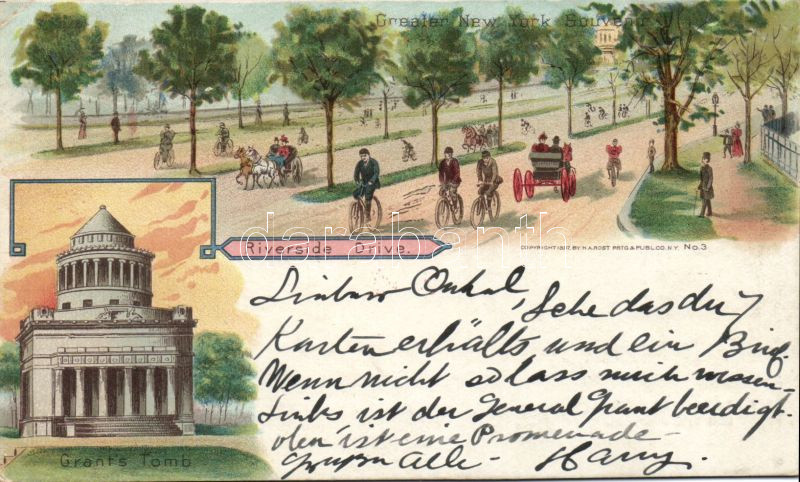 Greater New York Souvenir
Riverside Drive.
COPYRIGHT 1897, BY H.A.ROST PRTG & PUBL.CO.N.Y. No. 3
darabanth
Lieber Onkel, Sehe das du
Karten erhälts und ein Brief
Wenn nicht so lass mich wissen
Links ist der General Grant beerdigt.
oben ist eine Promenade
Grüße Alle - Harry.
Grant's Tomb